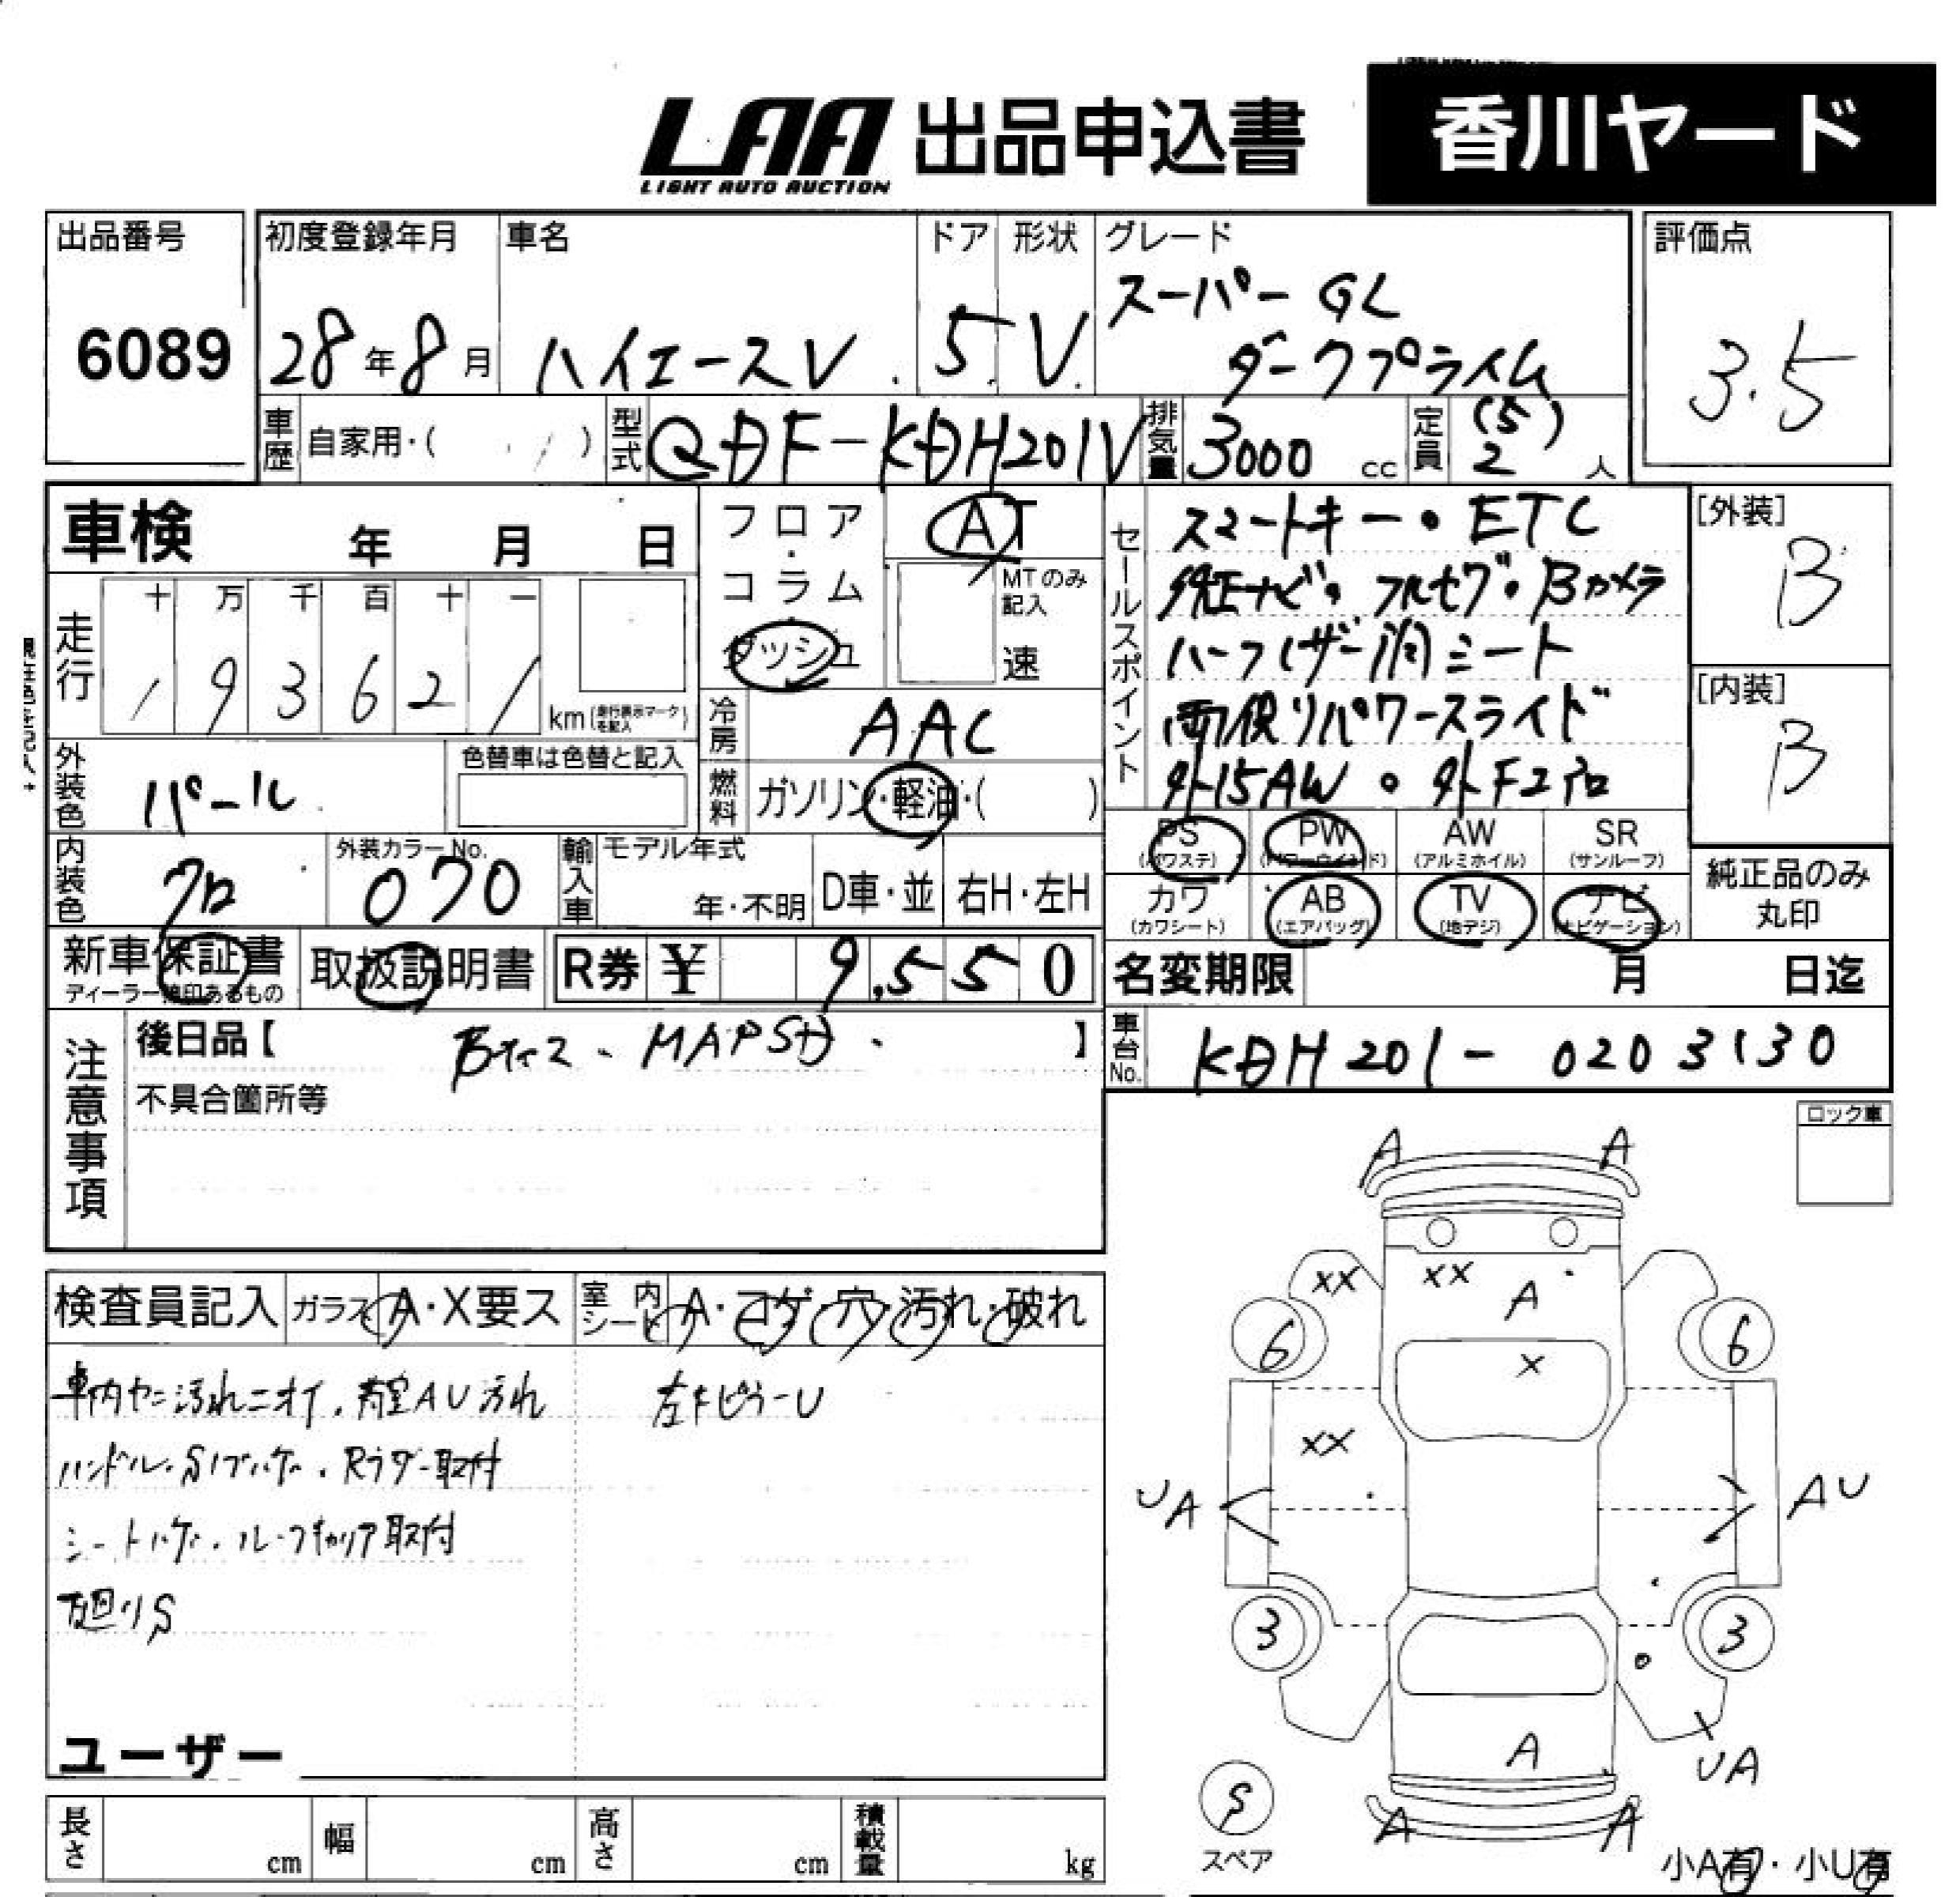 LAA 出品申込書 香川ヤード
LIGHT AUTO AUCTION
出品番号 6089
初度登録年月 28年8月
車名 ハイエースV
ドア 5
形状 V
グレード スーパー GL
ダークプライム
評価点 3.5
車歴 自家用・( )
型式 QDF-KDH201V
排気量 3000 cc
定員 (5)
2 人
車検 年 月 日
フロア・コラム・ダッシュ
AT
MTのみ記入
速
走行 十 万 千 百 十 一
1 9 3 6 2 1 km (走行表示マークを記入)
冷房 AAC
外装色 パール
色替車は色替と記入
燃料 ガソリン・軽油・( )
内装色 クロ
外装カラーNo. 070
輸入車 モデル年式
年・不明 D車・並 右H・左H
セールスポイント
スマートキー・ETC
純正ナビ・フルセグ・Bカメラ
ハーフレザー調シート
両側パワースライド
外15AW・外F
[外装] B
[内装] B
PS (パワステ) PW (パワーウインド) AW (アルミホイル) SR (サンルーフ)
カワ (カワシート) AB (エアバッグ) TV (地デジ) ナビ (ナビゲーション)
純正品のみ
丸印
新車保証書
ディーラー捺印あるもの
取扱説明書
R券 ¥ 9,550
名変期限 月 日迄
車台No. KDH201-0203130
注意事項
後日品【 MAPSD 】
不具合箇所等
ロック車
検査員記入 ガラス A・X要ス 室内シート A・コゲ・穴・汚れ・破れ
車内ヤニ汚れニオイ.荷室AU汚れ
ハンドル.Sハゲ.Rラダー取付
シートハゲ.ルーフキャリア取付
下廻りS
左FピラーU
ユーザー
A A
XX XX A
6 X 6
XX
UA AU
3 3
A UA
A A
S
スペア
小A有・小U有
長さ cm 幅 cm 高さ cm 積載量 kg